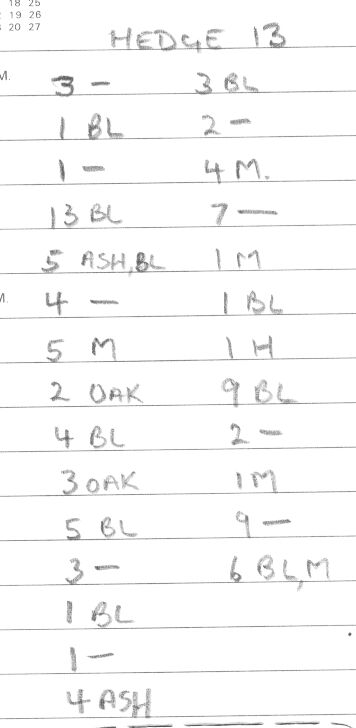 18 25
19 26
20 27
HEDGE 13
M.
3 — 3 BL
1 BL 2 —
1 — 4 M.
13 BL 7 —
5 ASH, BL 1 M
M.
4 — 1 BL
5 M 1 H
2 OAK 9 BL
4 BL 2 —
3 OAK 1 M
5 BL 9 —
3 — 6 BL, M
1 BL
1 —
4 ASH